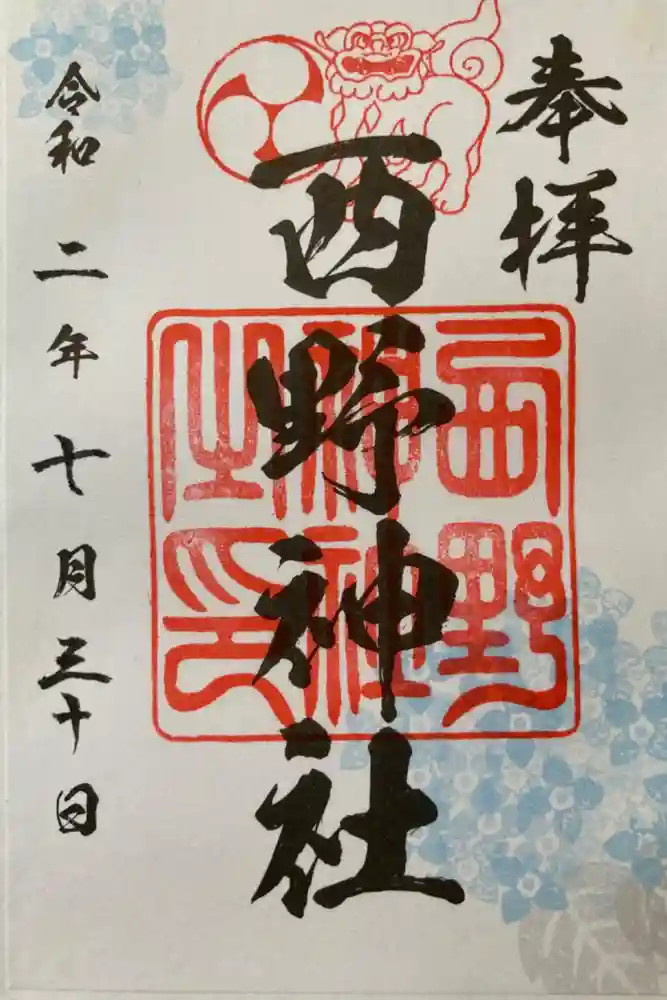 奉拝
西野神社
西野神社之印
令和二年十月三十日